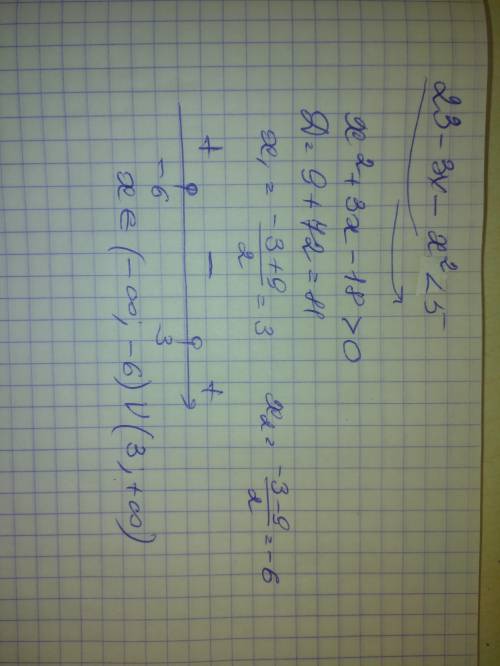 23 - 3x - x² < 5
x² + 3x - 18 > 0
D = 9 + 72 = 81
x₁ = (-3+9)/2 = 3 x₂ = (-3-9)/2 = -6
+ - +
-6 3
x ∈ (-∞; -6) ∪ (3, +∞)